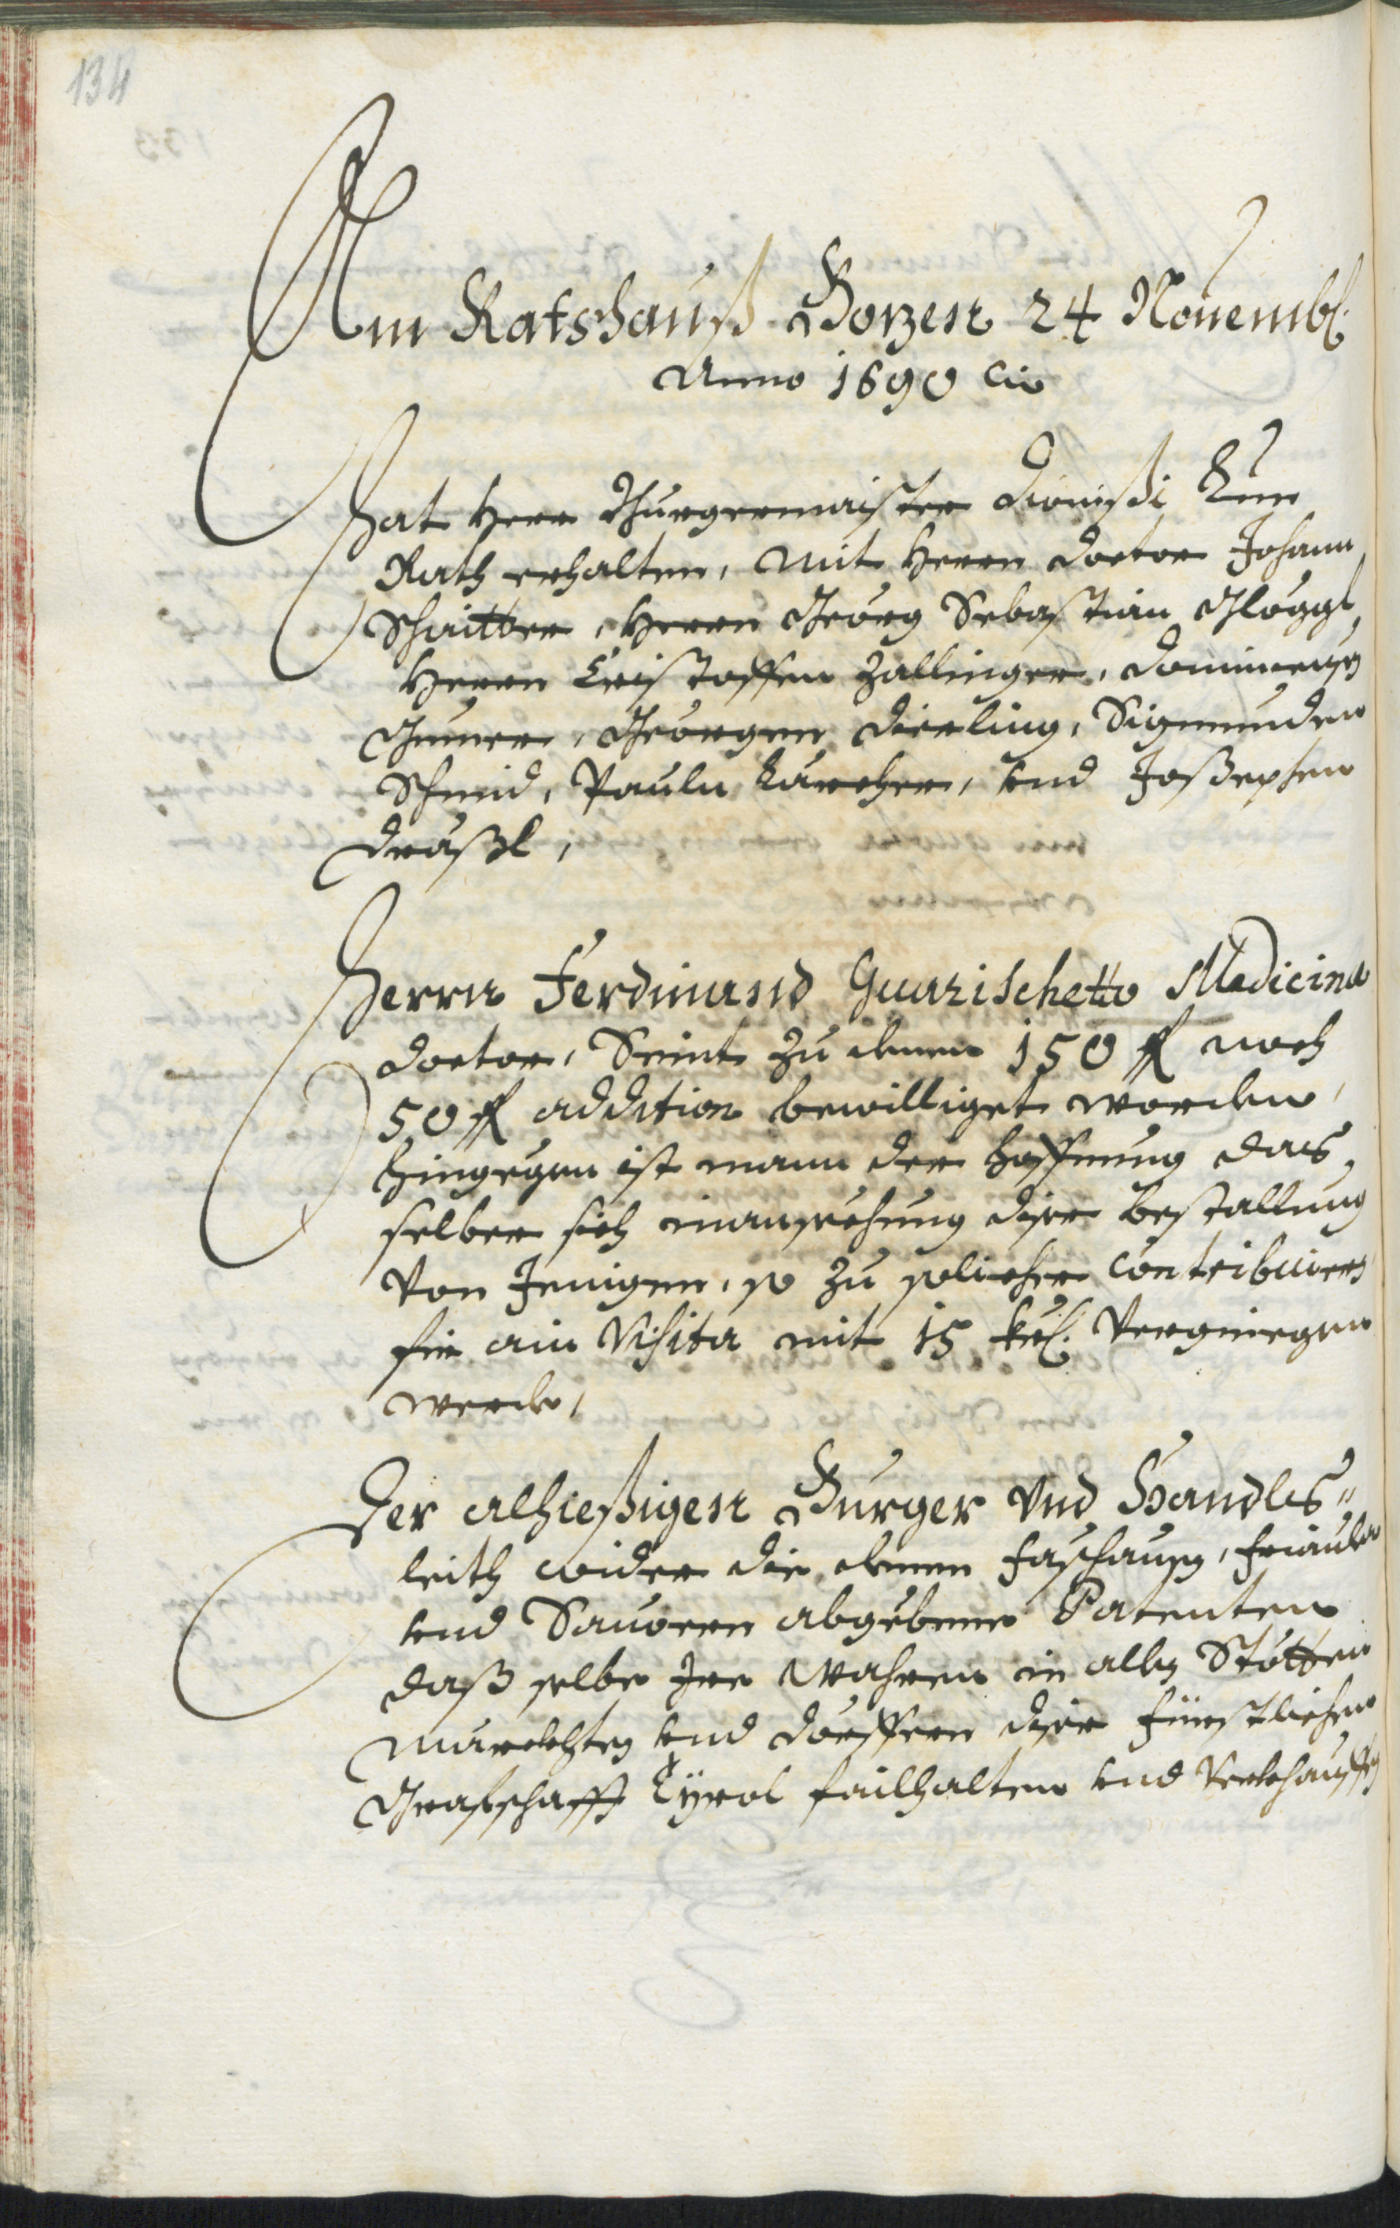 134
Am Ratshauß Bozen 24 Nouemb:
Anno 1690
Hat Herr Burgermaister Dionisi
Rath gehalten, mit Herrn Doctor Johann
Schaitter, Herrn Georg Sebastian Glöggl,
Herrn Cristoffen Zallinger, Dominicusen
Gumer, Georgen Dierling, Sigmunden
Schmid, Pauln Karcher, vnd Joßephen
Dräßl,
Herrn Ferdinand Guarischetto Medicina
Doctor, Seint zu denen 150 fl noch
50 fl addition bewilliget worden,
hingegen ist mann der hoffnung das
selber sich inansechung diser bestallung
von Jenigen, so zu solicher contribuiern
fir ain Visita mit 15 kr: vergniegen
werde,
Der alhießigen Burger Vnd Handls"
leith wider die denen Faschausn, Friauler
vnd Savoern abgebene Patenten
daß selbe Ire wahren in allen Stötten
märckhten vnd Dörffern diser Fürstlichen
Grafschafft Tÿrol failhalten vnd verkhauffen